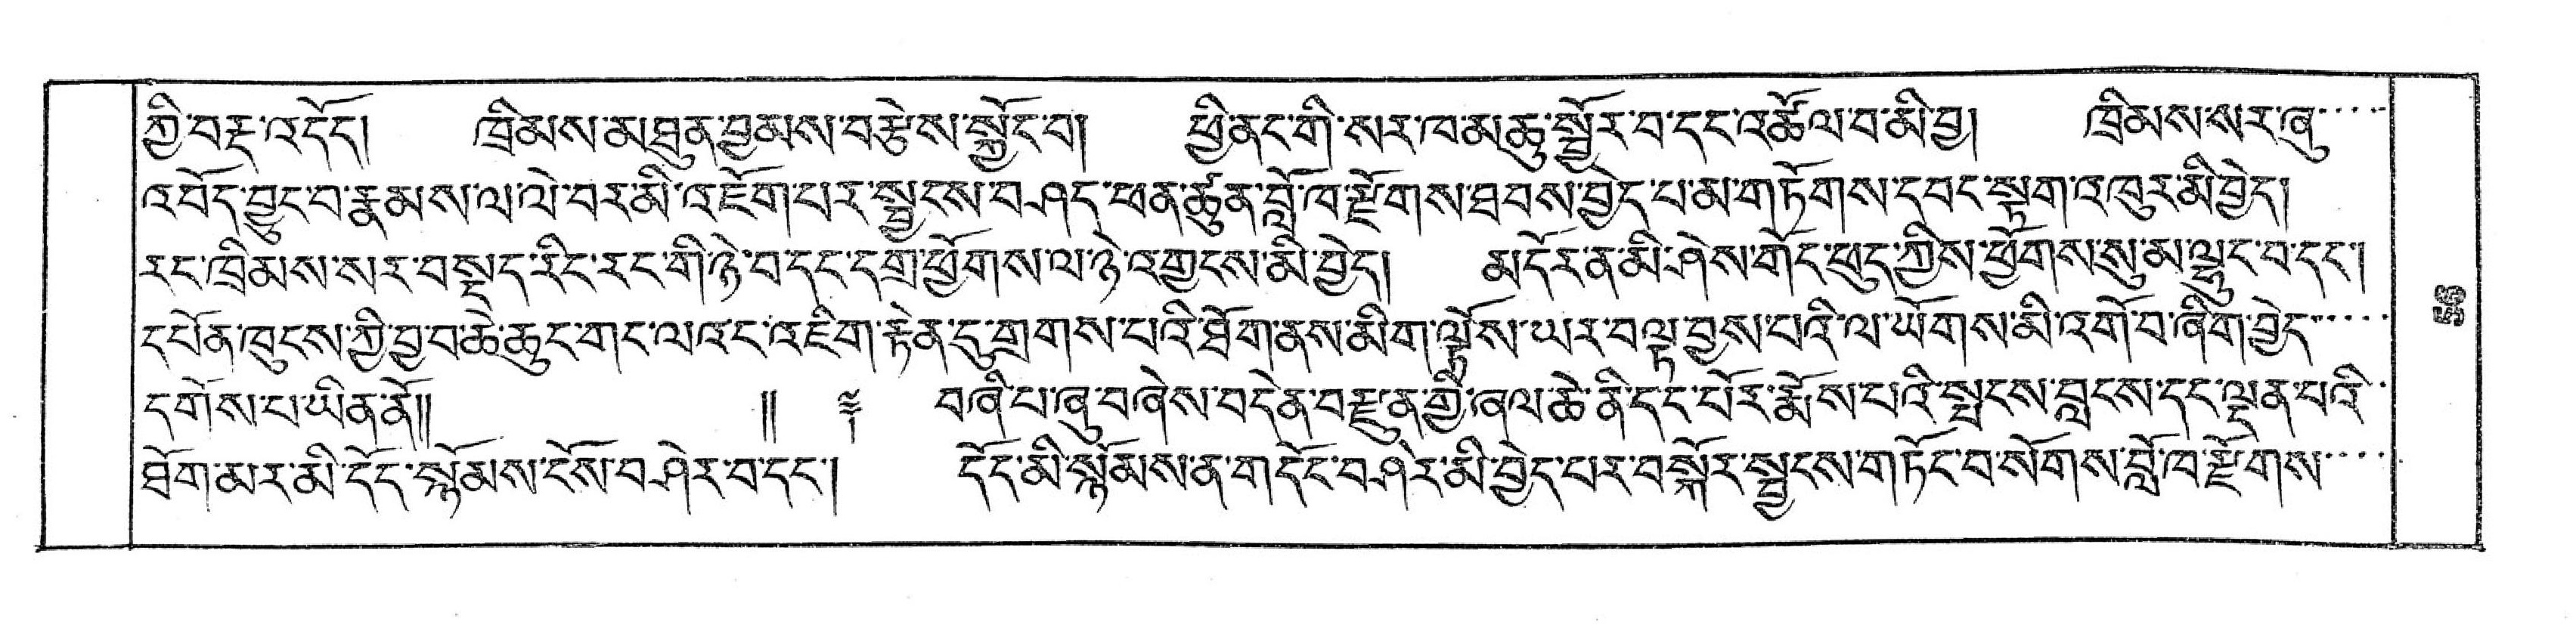 ཀྱི་བརྡ་འདོད། ཁྲིམས་མཐུན་བྱམས་བརྩེས་སྐྱོང་བ། ཕྱི་ནང་གི་སར་ཁ་མཆུ་སྦྱོར་བ་དང་འཚོལ་བ་མི་བྱ། ཁྲིམས་སར་ཞུ་····
འབོད་བྱུང་བ་རྣམས་ལ་ལེ་བར་མི་འཇོག་པར་སྦྱངས་བཤད་ཕན་ཚུན་བློ་ཁ་རྫོགས་ཐབས་བྱེད་པ་མ་གཏོགས་དབང་སྟག་འཁུར་མི་བྱེད།
རང་ཁྲིམས་སར་བསྡད་རིང་རང་གི་ཉེ་བ་དང་དགྲ་ཕྱོགས་ལ་ཉེ་འགྱངས་མི་བྱེད། མདོར་ན་མི་ཤེས་གོད་ཕུད་ཀྱིས་ཕྱོགས་སུ་མ་ལྷུང་བ་དང་།
དཔོན་ཁུངས་ཀྱི་བྱ་བ་ཆེ་ཆུང་གང་ལའང་འཇིག་རྟེན་དུ་གྲགས་པའི་ཐོག་ནས་མིག་ལྟོས་ཡར་བལྟ་བྱས་པའི་ལ་ཡོགས་མི་འགོ་བ་ཞིག་བྱེད་·····
དགོས་པ་ཡིན་ནོ།། ༎ ༈ བཞི་པ་ཞུ་བཞེས་བདེན་བརྫུན་གྱི་ཞལ་ཆེ་ནི་དང་པོར་རྨོས་པའི་སྤངས་བླངས་དང་ལྡན་པའི་
ཐོག་མར་མི་དོད་སྙོམས་ངོས་བཤེར་བ་དང་། དོད་མི་སྙོམས་ན་གདོང་བཤེར་མི་བྱེད་པར་བསྐོར་སྦྱངས་གཏོང་བ་སོགས་བློ་ཁ་རྫོགས་····